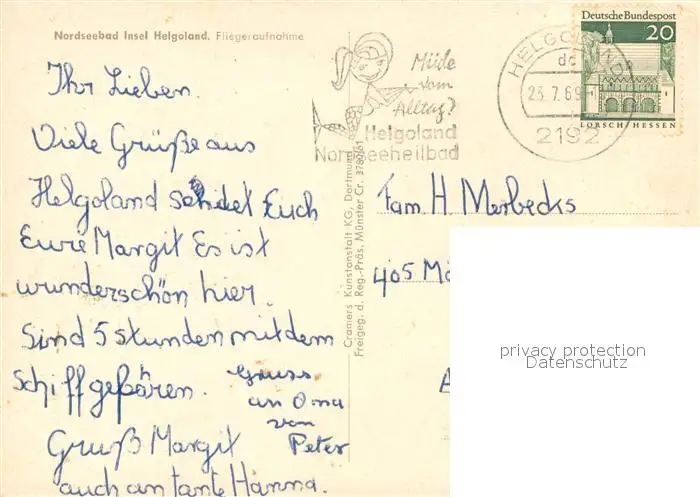 Nordseebad Insel Helgoland. Fliegeraufnahme
Ihr Lieben.
Viele Grüße aus
Helgoland sendet Euch
Eure Margit Es ist
wunderschön hier.
Sind 5 stunden mit dem
schiff gefahren.
Gruß Margit
auch an tante Hanna.
Gruss
an Oma
von
Peter
Cramers Kunstanstalt KG, Dortmund
Freigeg. d. Reg.-Präs. Münster Cr. 3780/61
Müde
vom
Alltag?
Helgoland
Nordseeheilbad
HELGOLAND
dc
23.7.69
2192
Deutsche Bundespost
20
LORSCH/HESSEN
Fam. H. Merbecks
405 Mö
privacy protection
Datenschutz